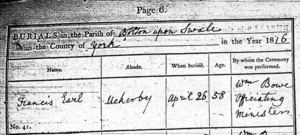 Page 6.
BURIALS in the Parish of Bolton upon Swale
in the County of York in the Year 1816
Name. Abode. When buried. Age. By whom the Ceremony was performed.
Francis Earl Uckerby April 26 58 Wm Bowe
Officiating
Minister
No. 41.